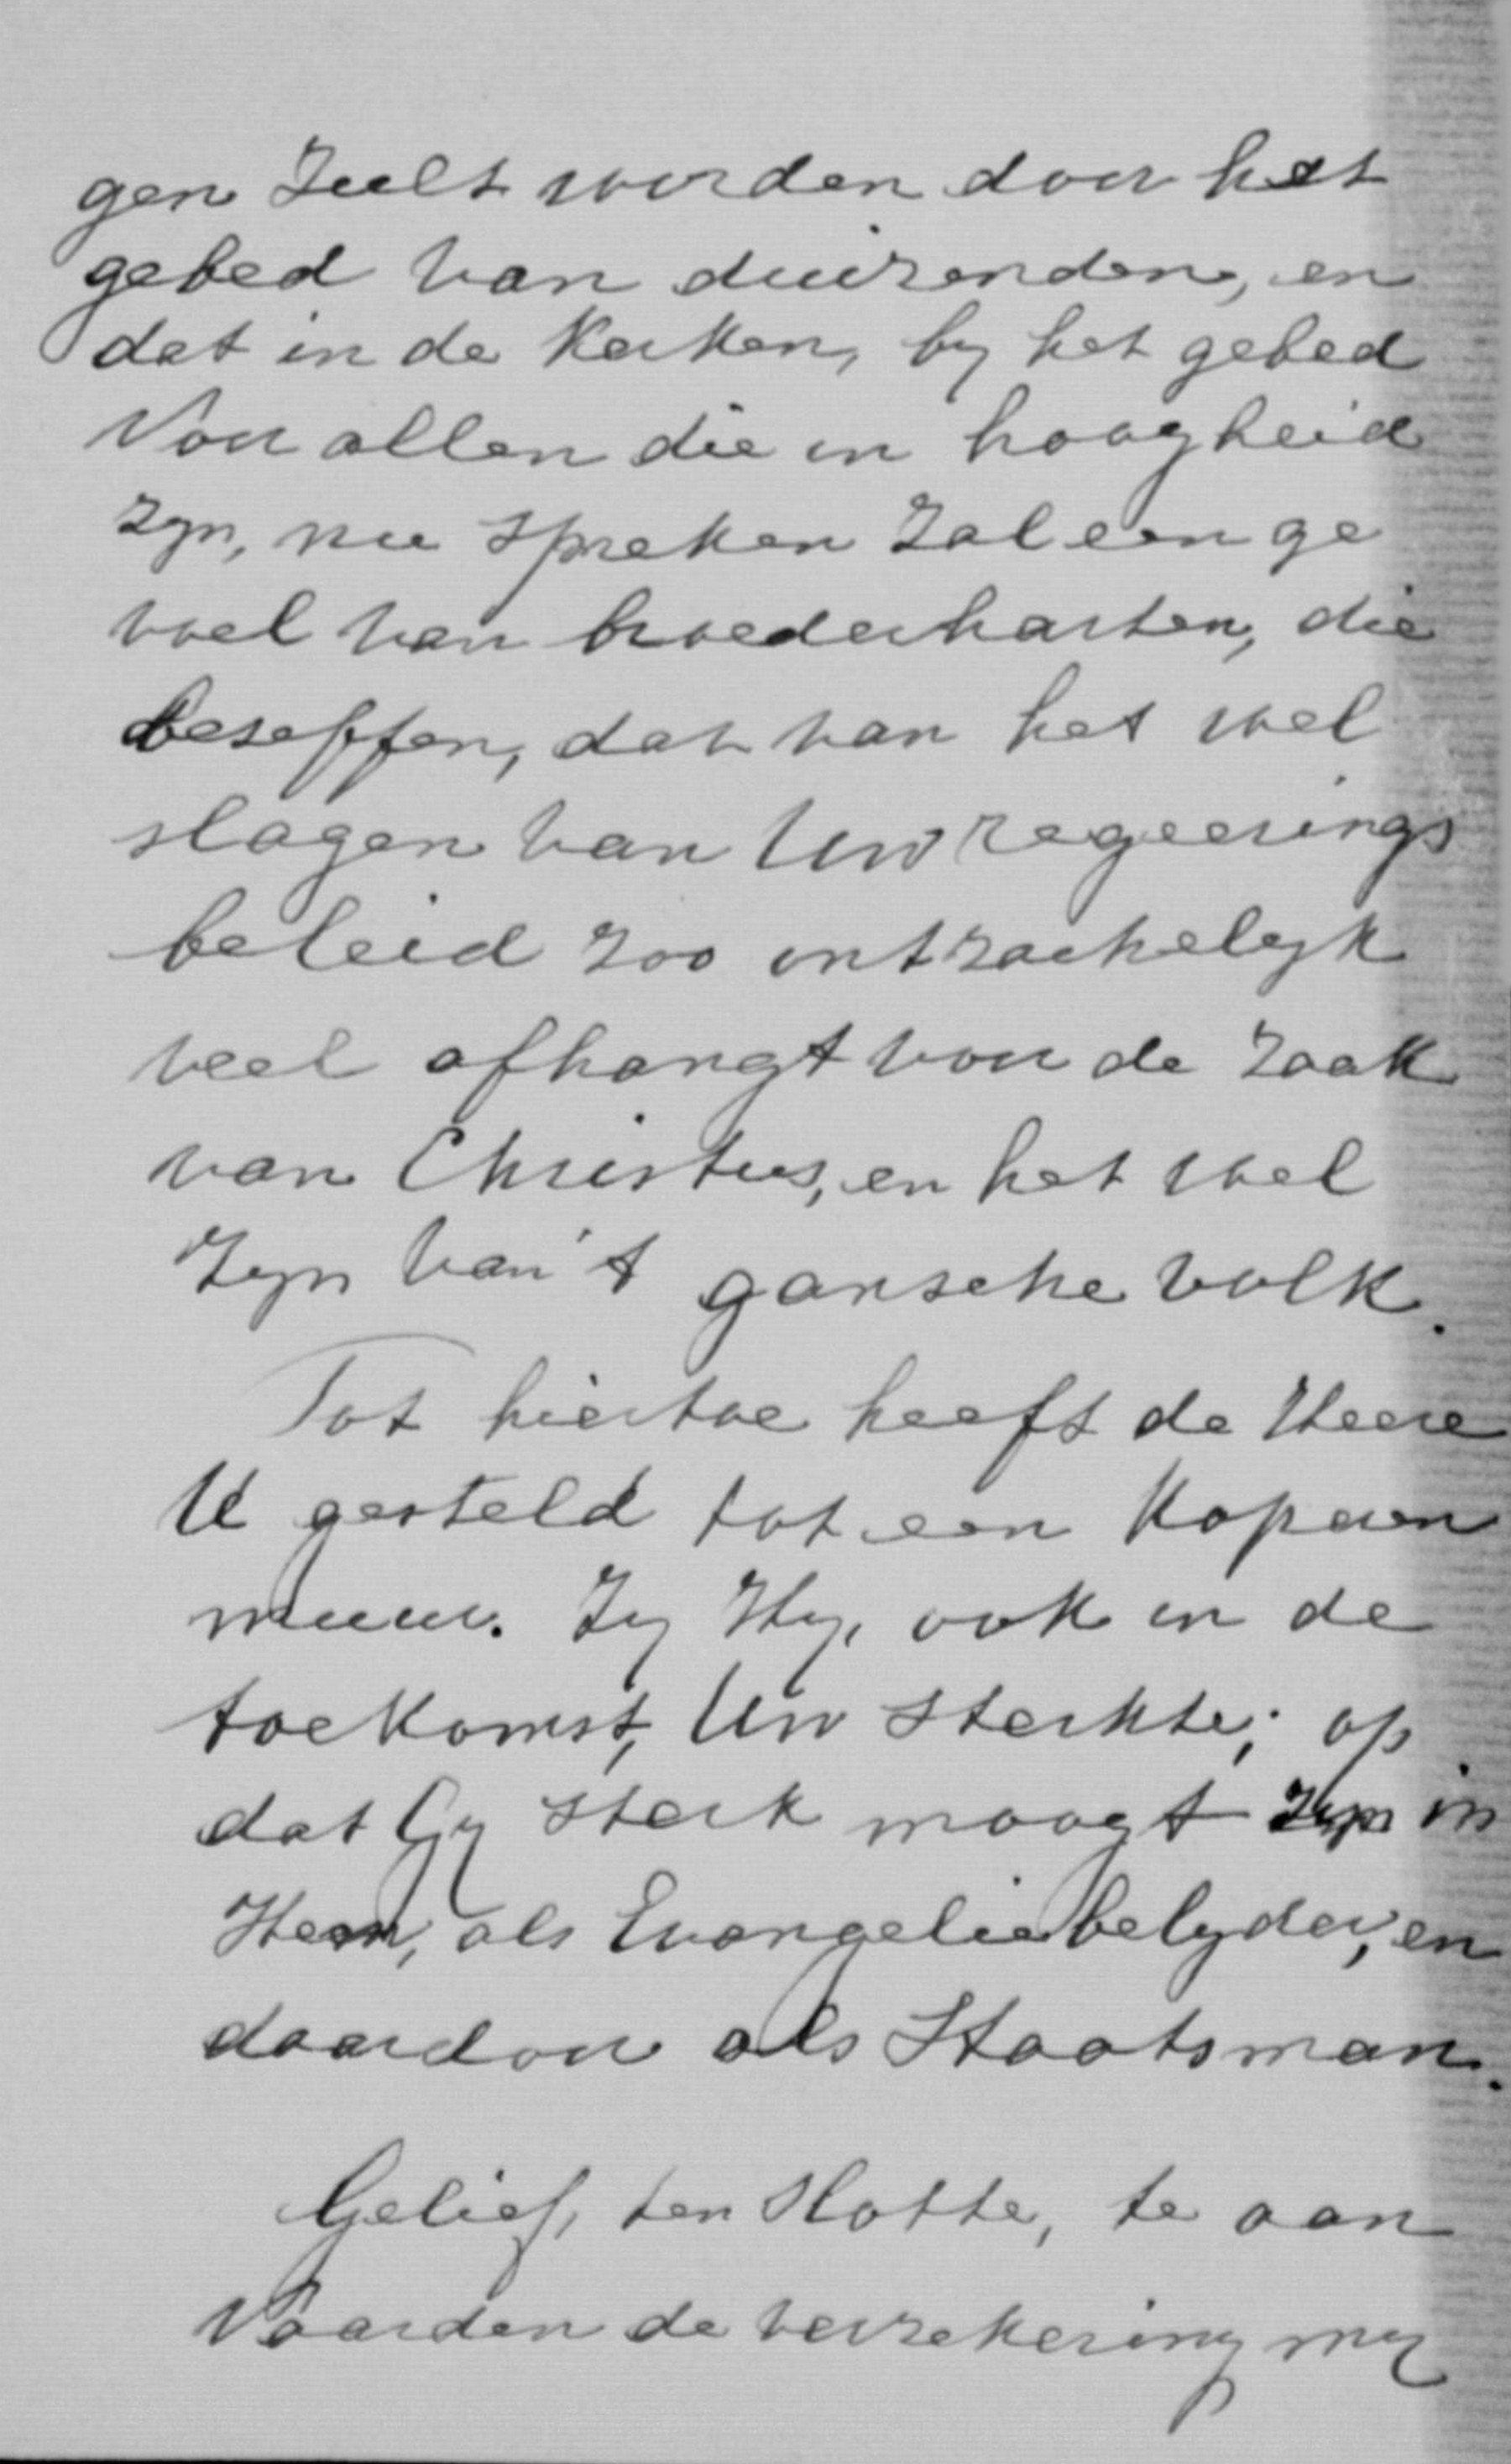 gen zult worden door het
gebed van duizenden, en
dat in de Kerken, by het gebed
Voor allen die in hoogheid
zyn, nu spreken zal een ge
voel van broederharten, die
beseffen, dat van het wel
slagen van Uw regeerings
beleid zoo ontzachelyk
veel afhangt voor de zaak
van Christus, en het wel
zyn van 't gansche volk.
Tot hiertoe heeft de Heere
U gesteld tot een Koperen
muur. Zy Hy, ook in de
toekomst, Uw sterkte; op
dat Gy sterk moogt zyn in
Hem, als Evangeliebelyder, en
daardoor als Staatsman.
Gelief, ten slotte, te aan
Vaarden de verzekering my